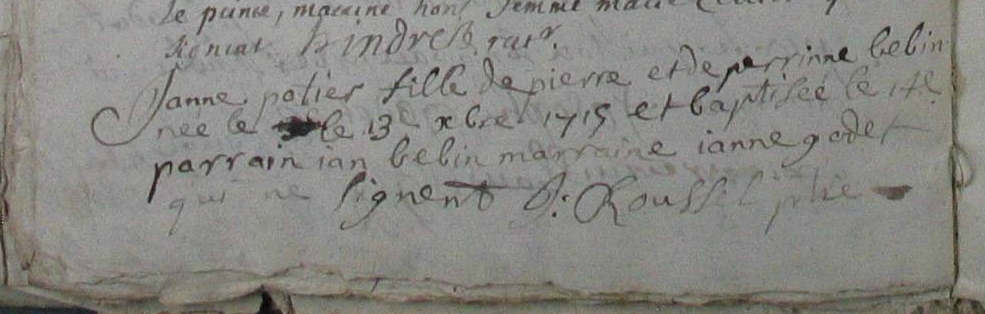 le prince, maraine hon^t femme marie
signiat hindreß. rat^r.
Janne potier fille de pierre et de perrinne bebin
née le le 13^e xbre 1715 et baptisée le 14^e
parrain ian bebin marraine ianne godet
qui ne signent Roussel